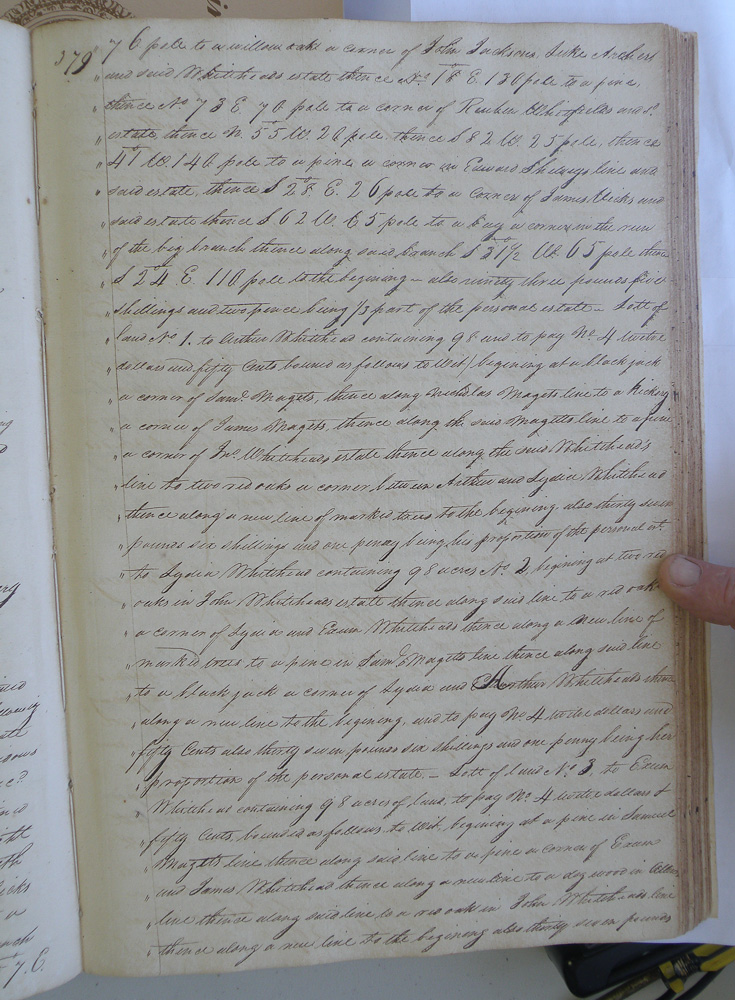 379
" 76 pole to a willow oak a corner of John Jacksons, Luke Archers
" and said Whiteheads estate thence No. 18 E. 130 pole to a pine,
" thence No 73 E. 70 pole to a corner of Reuben Whitfields and sd.
" estate, thence N. 55 W. 20 pole, thence S 82 W. 25 pole, thence
" 41 W. 140 pole to a pine a corner in Edward line and
" said estate, thence S 28 E. 26 pole to a corner of James Vicks and
" said estate thence S. 62 W. 65 pole to a a corner in the run
" of the big branch thence along said branch S 31 1/2 W. 65 pole thence
" S 24 E. 110 pole to the begining – also ninety three pounds five
" shillings and two pence being 1/3 part of the personal estate – Lott of
" land No 1. to Arthur Whitehead containing 98 and to pay No. 4 twelve
" dollars and fifty Cents bound as follows to Wit/ begining at a black jack
" a corner of Saml. Magets, thence along Nicholas Magets line to a hickory
" a corner of James Magets, thence along the said Magetts line to a pine
" a corner of Jno. Whiteheads estate thence along the said Whitehead's
" line to two red oaks a corner between Arthur and Lydia Whitehead
" thence along a new line of marked trees to the begining also thirty seven
" pounds six shillings and one penny being his proportion of the personal est.
" to Lydia Whitehead containing 98 acres No. 2, begining at two red
" oaks in John Whiteheads estate thence along said line to a red oak
" a corner of Lydia and Exum Whiteheads thence along a new line of
" marked trees to a pine in Saml. Magetts line thence along said line
" to a black jack a corner of Lydia and Arthur Whiteheads thence
" along a new line to the begining, and to pay No. 4 twelve dollars and
" fifty Cents also thirty seven pounds six shillings and one penny being her
" proportion of the personal estate. – Lott of land No. 3, to Exum
" Whitehead containing 98 acres of land, to pay No. 4 twelve dollars &
" fifty Cents, bounded as follows to wit, begining at a pine in Samuel
" Magets line thence along said line to a pine a corner of Exum
" and James Whitehead thence along a new line to a dogwood in
" line thence along said line to a red oak in John Whiteheads line
" thence along a new line to the begining also thirty seven pounds
7.6.